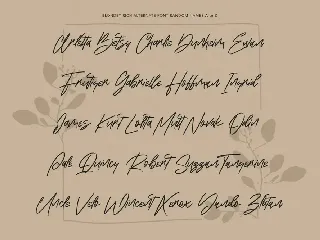 Arletta Betsy Charlie Dunheim Evan
Frettiger Gabrielle Hoffman Ingrid
James Kurt Lotta Matt Novak Odin
Quincy Robert Suzzan Tangerine
Uncle Veto Wincent Xerox Yando Zlatan